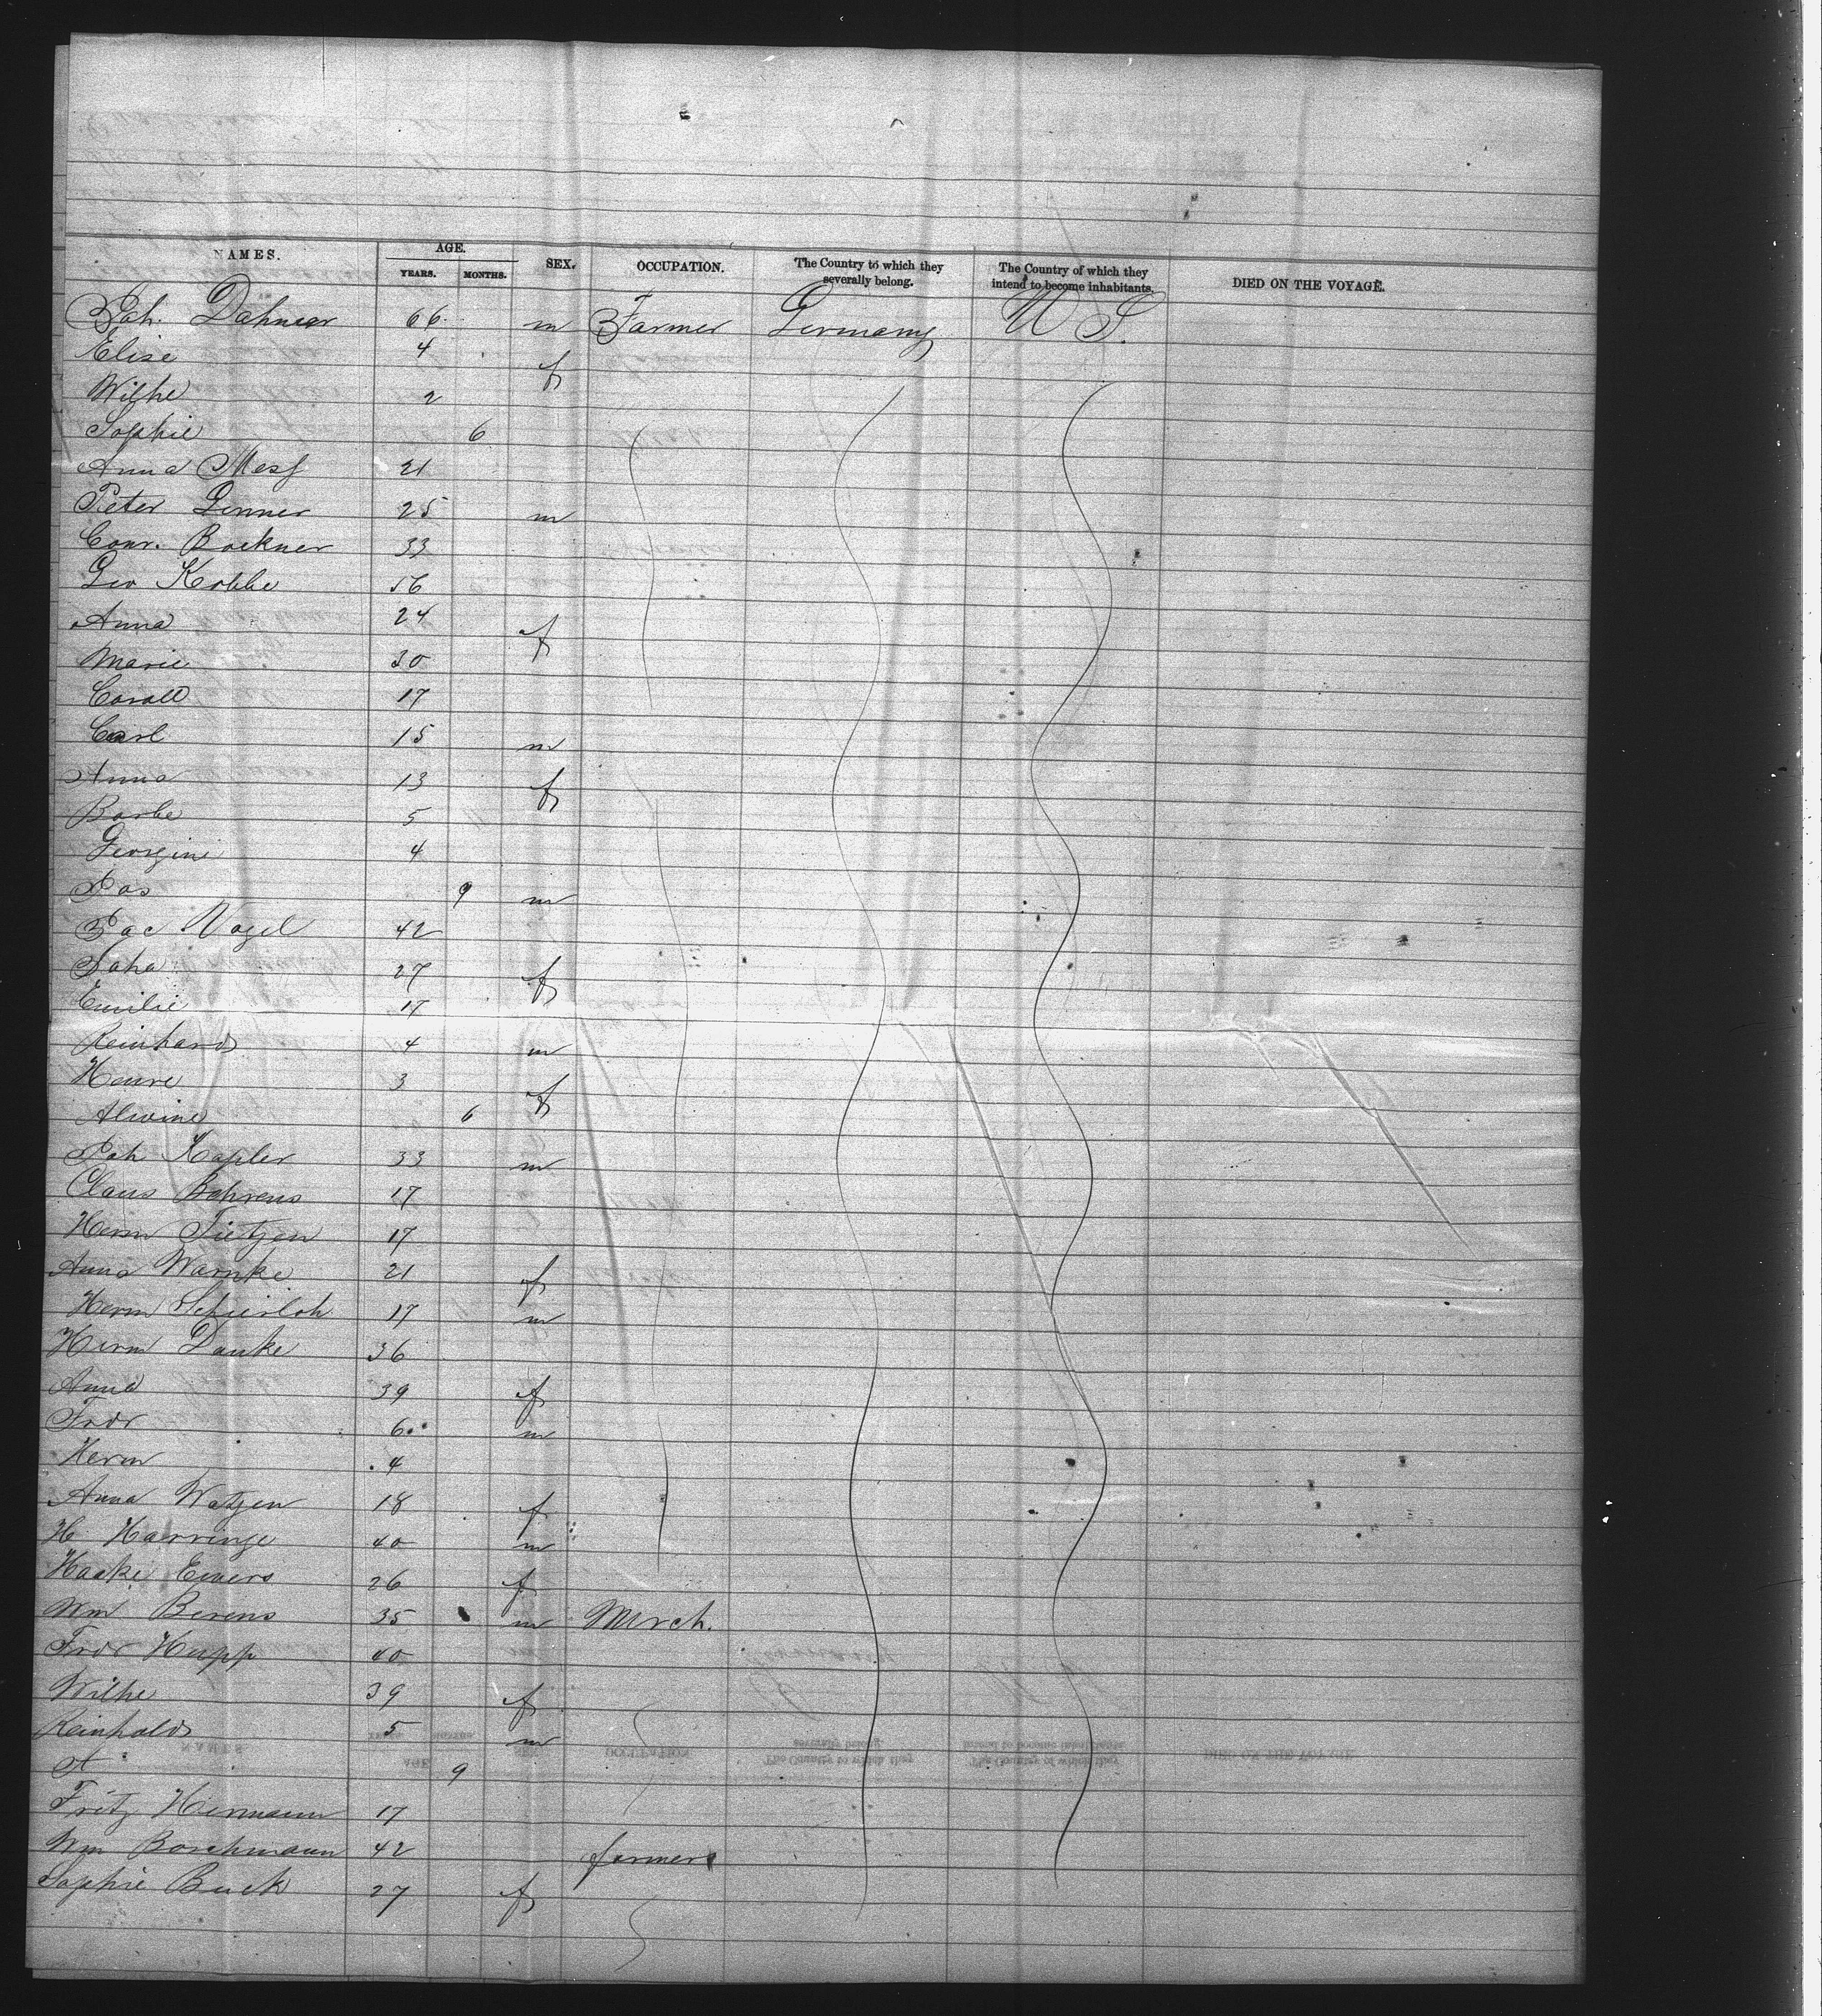 NAMES. AGE. SEX. OCCUPATION. The Country to which they severally belong. The Country of which they intend to become inhabitants. DIED ON THE VOYAGE.
YEARS. MONTHS.
Joh. Dahmer 66 m Farmer Germany U S.
Elise 4 f
Wilhe 2
Sophie 6
Anna 21
Peter Genner 25 m
Conr. Bockner 33
Geo Kobbe 56
Anna 24 f
Marie 30
Coroll 17
Carl 15 m
Anna 13 f
Barbe 5
Georgine 4
Jos 9 m
Jac Vogel 42
Joha 27 f
Emilie 17
Reinhard 4 m
Henre 3 f
Alwine 6
Joh Kapler 33 m
Claus Behrens 17
Herm Tietjen 17
Anna Warnke 21 f
Herm Schierloh 17 m
Herm Danke 36
Anna 39 f
Fredr 6 m
Herm 4
Anna Watjen 18 f
H. Harringe 40 m
Haake Ewers 26 f
Wm Berens 35 m Merch.
Fredr Hupp 40
Wilhe 39 f
Reinhold 5 m
A 9
Fritz Hermann 17
Wm Borchmann 42 farmer
Sophie Buck 27 f